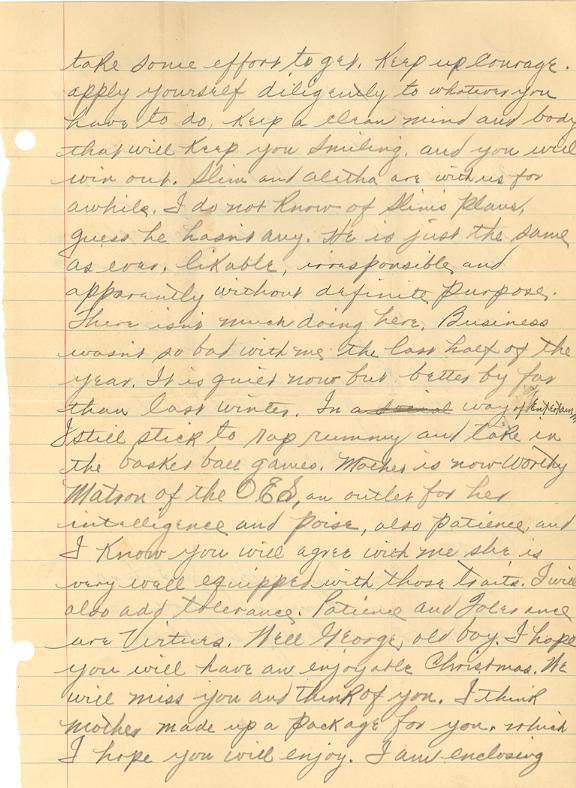 take some effort to get. Keep up courage.
apply yourself diligently to whatever you
have to do, keep a clean mind and body
that will keep you smiling, and you will
win out. Slim and aletha are with us for
awhile. I do not know of Slim's plans,
guess he hasn't any. He is just the same
as ever, likable, irresponsible and
apparently without definite purpose.
There isn't much doing here. Business
wasn't so bad with me the last half of the
year. It is quiet now but better by far
than last winter. In a social way of Entertain
I still stick to rap rummy and take in
the basket ball games. Mother is now Worthy
Matron of the OES, an outlet for her
intelligence and poise, also patience, and
I know you will agree with me she is
very well equipped with those traits. I will
also add tolerance. Patience and Tolerance
are Virtues. Well George, old boy. I hope
you will have an enjoyable Christmas. We
will miss you and think of you. I think
mother made up a package for you. which
I hope you will enjoy. I am enclosing